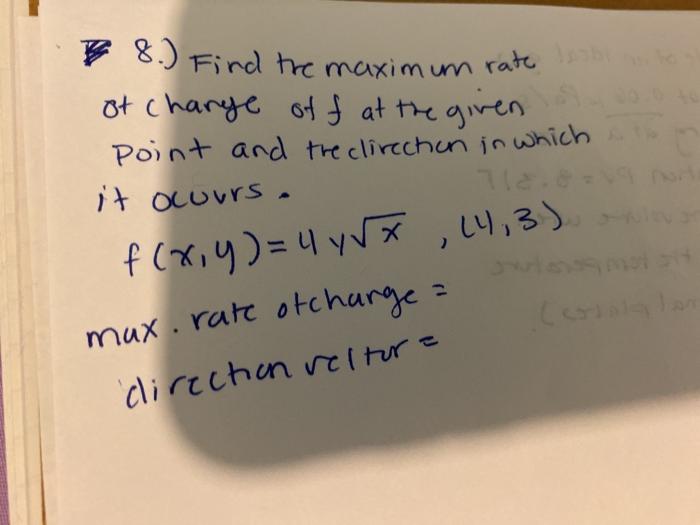 8.) Find the maximum rate
of change of f at the given
point and the direction in which
it occurs.
f(x,y)=4y√x , (4,3)
max. rate of change =
direction vector =